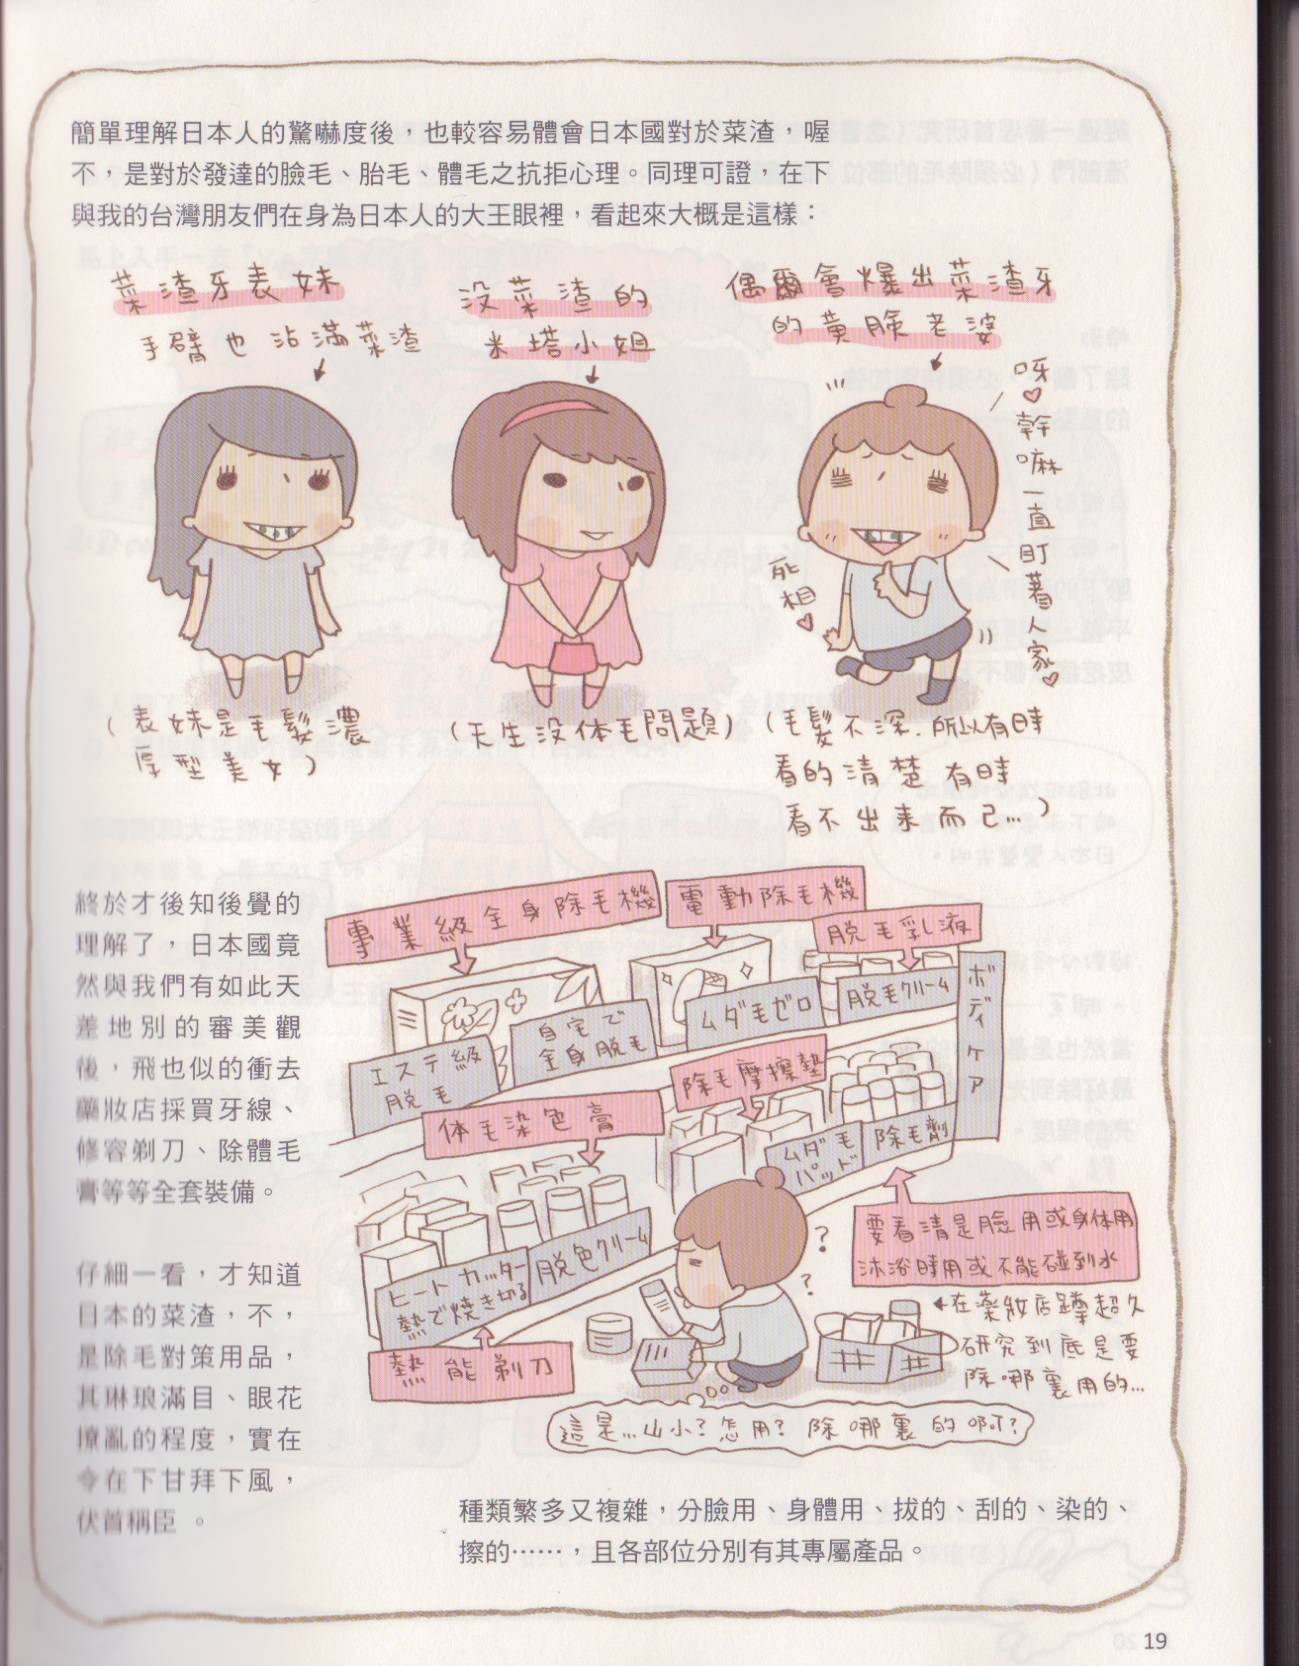 簡單理解日本人的驚嚇度後，也較容易體會日本國對於菜渣，喔
不，是對於發達的臉毛、胎毛、體毛之抗拒心理。同理可證，在下
與我的台灣朋友們在身為日本人的大王眼裡，看起來大概是這樣：
菜渣牙表妹
手臂也沾滿菜渣
没菜渣的
米塔小姐
偶爾會爆出菜渣牙
的黃臉老婆
呀♡幹嘛一直盯著人家♡
死相♡
(表妹是毛髮濃
厚型美女)
(天生没体毛問題)
(毛髮不深.所以有時
看的清楚 有時
看不出来而已...)
終於才後知後覺的
理解了，日本國竟
然與我們有如此天
差地別的審美觀
後，飛也似的衝去
藥妝店採買牙線、
修容剃刀、除體毛
膏等等全套裝備。
仔細一看，才知道
日本的菜渣，不，
是除毛對策用品，
其琳琅滿目、眼花
撩亂的程度，實在
令在下甘拜下風，
伏首稱臣 。
專業級全身除毛機
電動除毛機
脫毛乳液
エステ級
脱毛
自宅で
全身脱毛
ムダ毛ゼロ
脱毛クリーム
ボディケア
体毛染色膏
除毛摩擦墊
ムダ毛
パッド
除毛剤
ヒートカッター
熱で焼き切る
脱色クリーム
熱能剃刀
要看清是臉用或身体用
沐浴時用或不能碰到水
在藥妝店蹲超久
研究到底是要
除哪裏用的...
?
?
這是...山小?怎用?除哪裏的啊?
種類繁多又複雜，分臉用、身體用、拔的、刮的、染的、
擦的……，且各部位分別有其專屬產品。
19